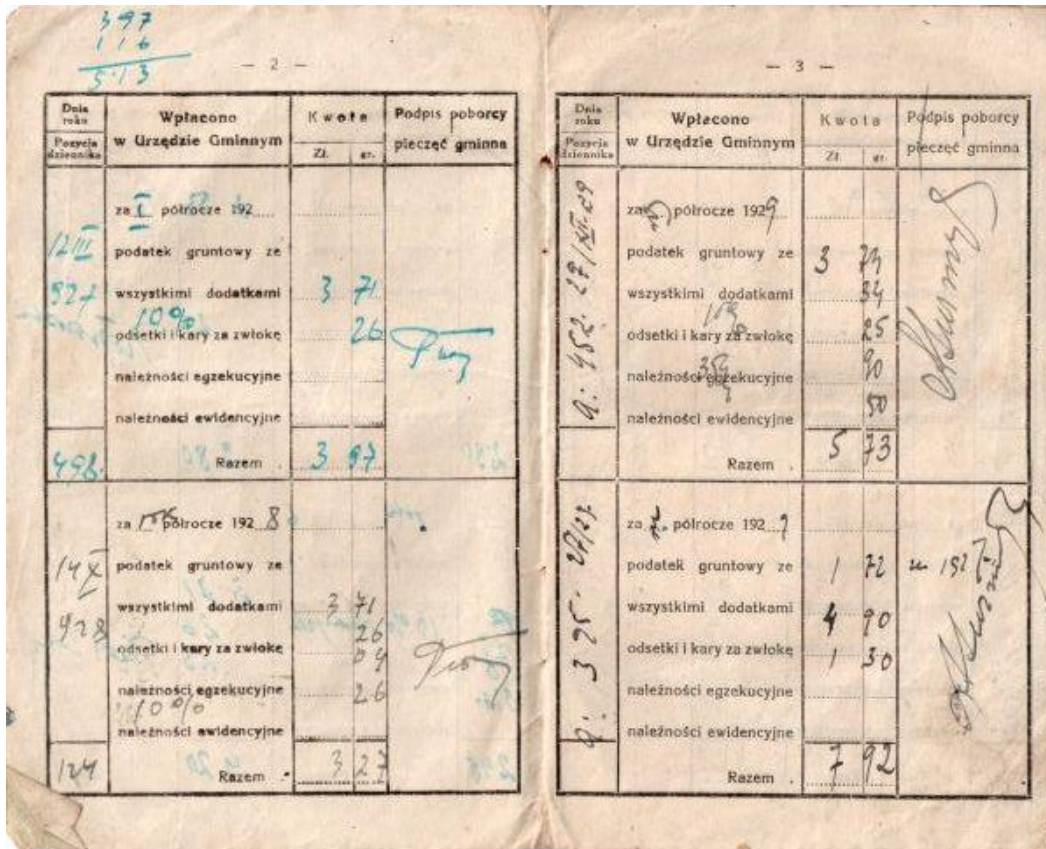 397
116
513
— 2 —
Dnia roku
Pozycja dziennika
Wpłacono w Urzędzie Gminnym
Kwota
Zł. gr.
Podpis poborcy
pieczęć gminna
za I półrocze 192
12 III podatek gruntowy ze
927 wszystkimi dodatkami 3 71
10%
odsetki i kary za zwłokę 26
należności egzekucyjne
należności ewidencyjne
498. Razem 3 97
za półrocze 192 8
14 X podatek gruntowy ze
928 wszystkimi dodatkami 3 71
26
odsetki i kary za zwłokę 04
należności egzekucyjne 26
10%
należności ewidencyjne
124 Razem . 3 27
— 3 —
Dnia roku
Pozycja dziennika
Wpłacono w Urzędzie Gminnym
Kwota
Zł. gr.
Podpis poborcy
pieczęć gminna
za półrocze 1929
podatek gruntowy ze 3
wszystkimi dodatkami 34
odsetki i kary za zwłokę 25
należności egzekucyjne 90
należności ewidencyjne 50
Razem . 5 73
za półrocze 192
podatek gruntowy ze 1 72
wszystkimi dodatkami 4 90
odsetki i kary za zwłokę 1 30
należności egzekucyjne
należności ewidencyjne
Razem . 7 92